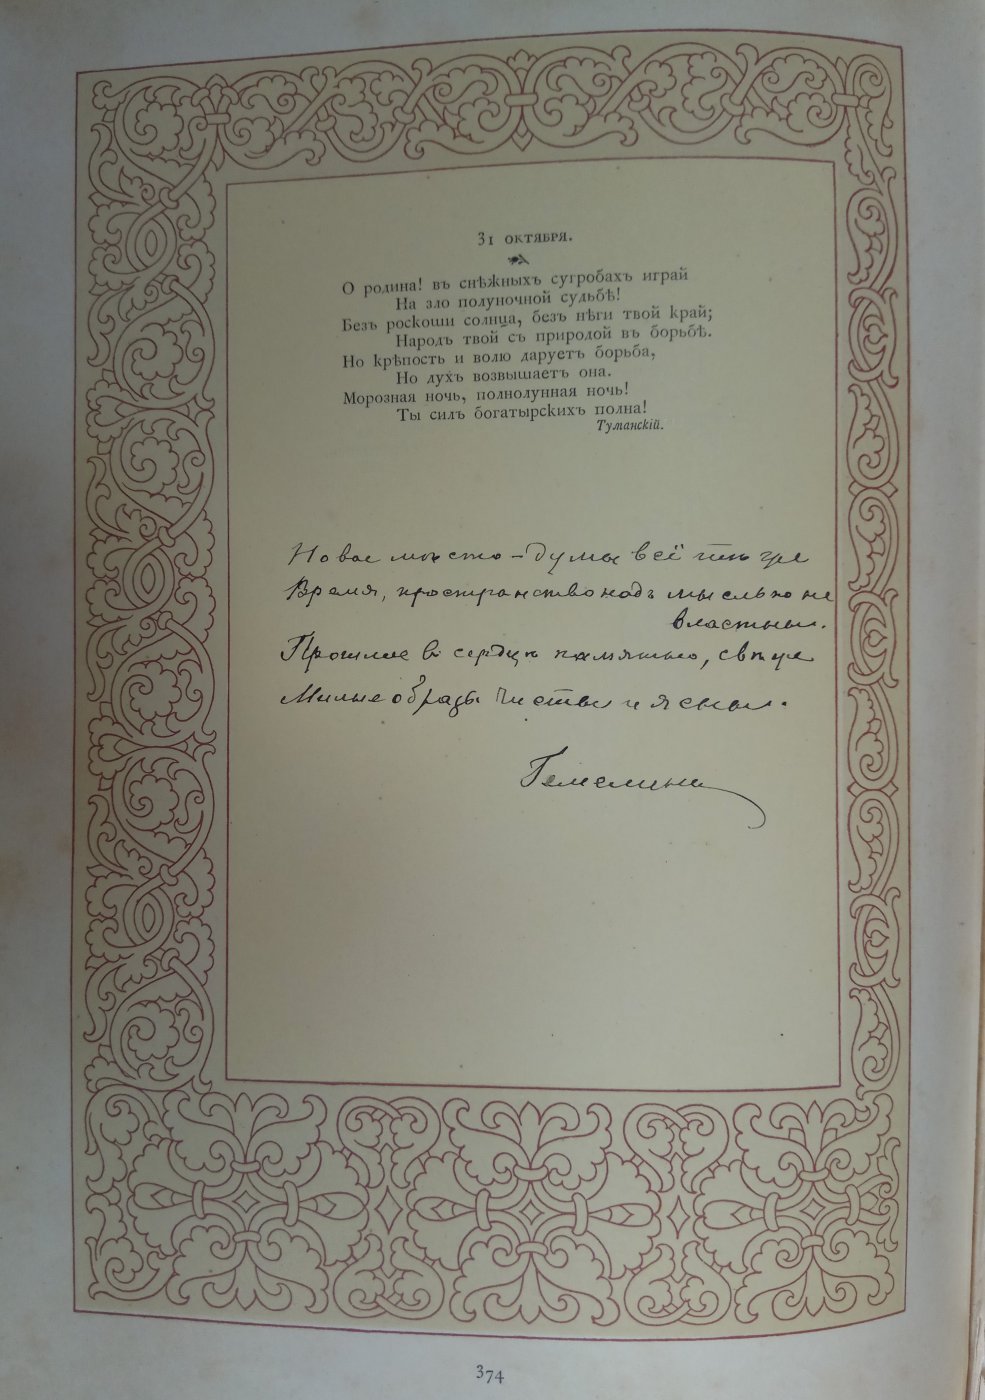 31 октября.
О родина! въ снѣжныхъ сугробахъ играй
На зло полуночной судьбѣ!
Безъ роскоши солнца, безъ нѣги твой край;
Народъ твой съ природой въ борьбѣ.
Но крѣпость и волю даруетъ борьба,
Но духъ возвышаетъ она.
Морозная ночь, полнолунная ночь!
Ты силъ богатырскихъ полна!
Туманскій.
Новое мѣсто – думы всё тѣ же
Время, пространство надъ мыслью не
властны.
Прошлое въ сердцѣ памятью, свѣже
Милые образы чисты и ясны.
374